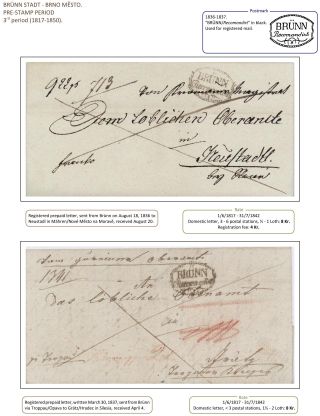 BRÜNN STADT - BRNO MĚSTO.
PRE-STAMP PERIOD
3rd period (1817-1850).
Postmark
1836-1837.
"BRÜNN/Recomandirt" in black.
Used for registered mail.
BRÜNN
Recomandirt
713
Vom
Magistrat
BRÜNN
Dem löblichen Oberamte
in
Neustadtl.
franko
bey Brünn
Registered prepaid letter, sent from Brünn on August 18, 1836 to
Neustadtl in Mähren/Nové Město na Moravě, received August 20.
Rate
1/6/1817 - 31/7/1842
Domestic letter, 3 - 6 postal stations, ½ - 1 Loth: 8 Kr.
Registration fee: 4 Kr.
BRÜNN
An
das löbliche Oberamt
Registered prepaid letter, written March 30, 1837, sent from Brünn
via Troppau/Opava to Grätz/Hradec in Silesia, received April 4.
Rate
1/6/1817 - 31/7/1842
Domestic letter, < 3 postal stations, 1½ - 2 Loth: 8 Kr.